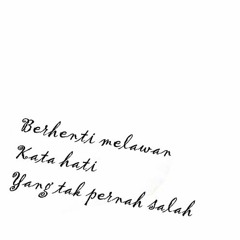 Berhenti melawan
Kata hati
Yang tak pernah salah